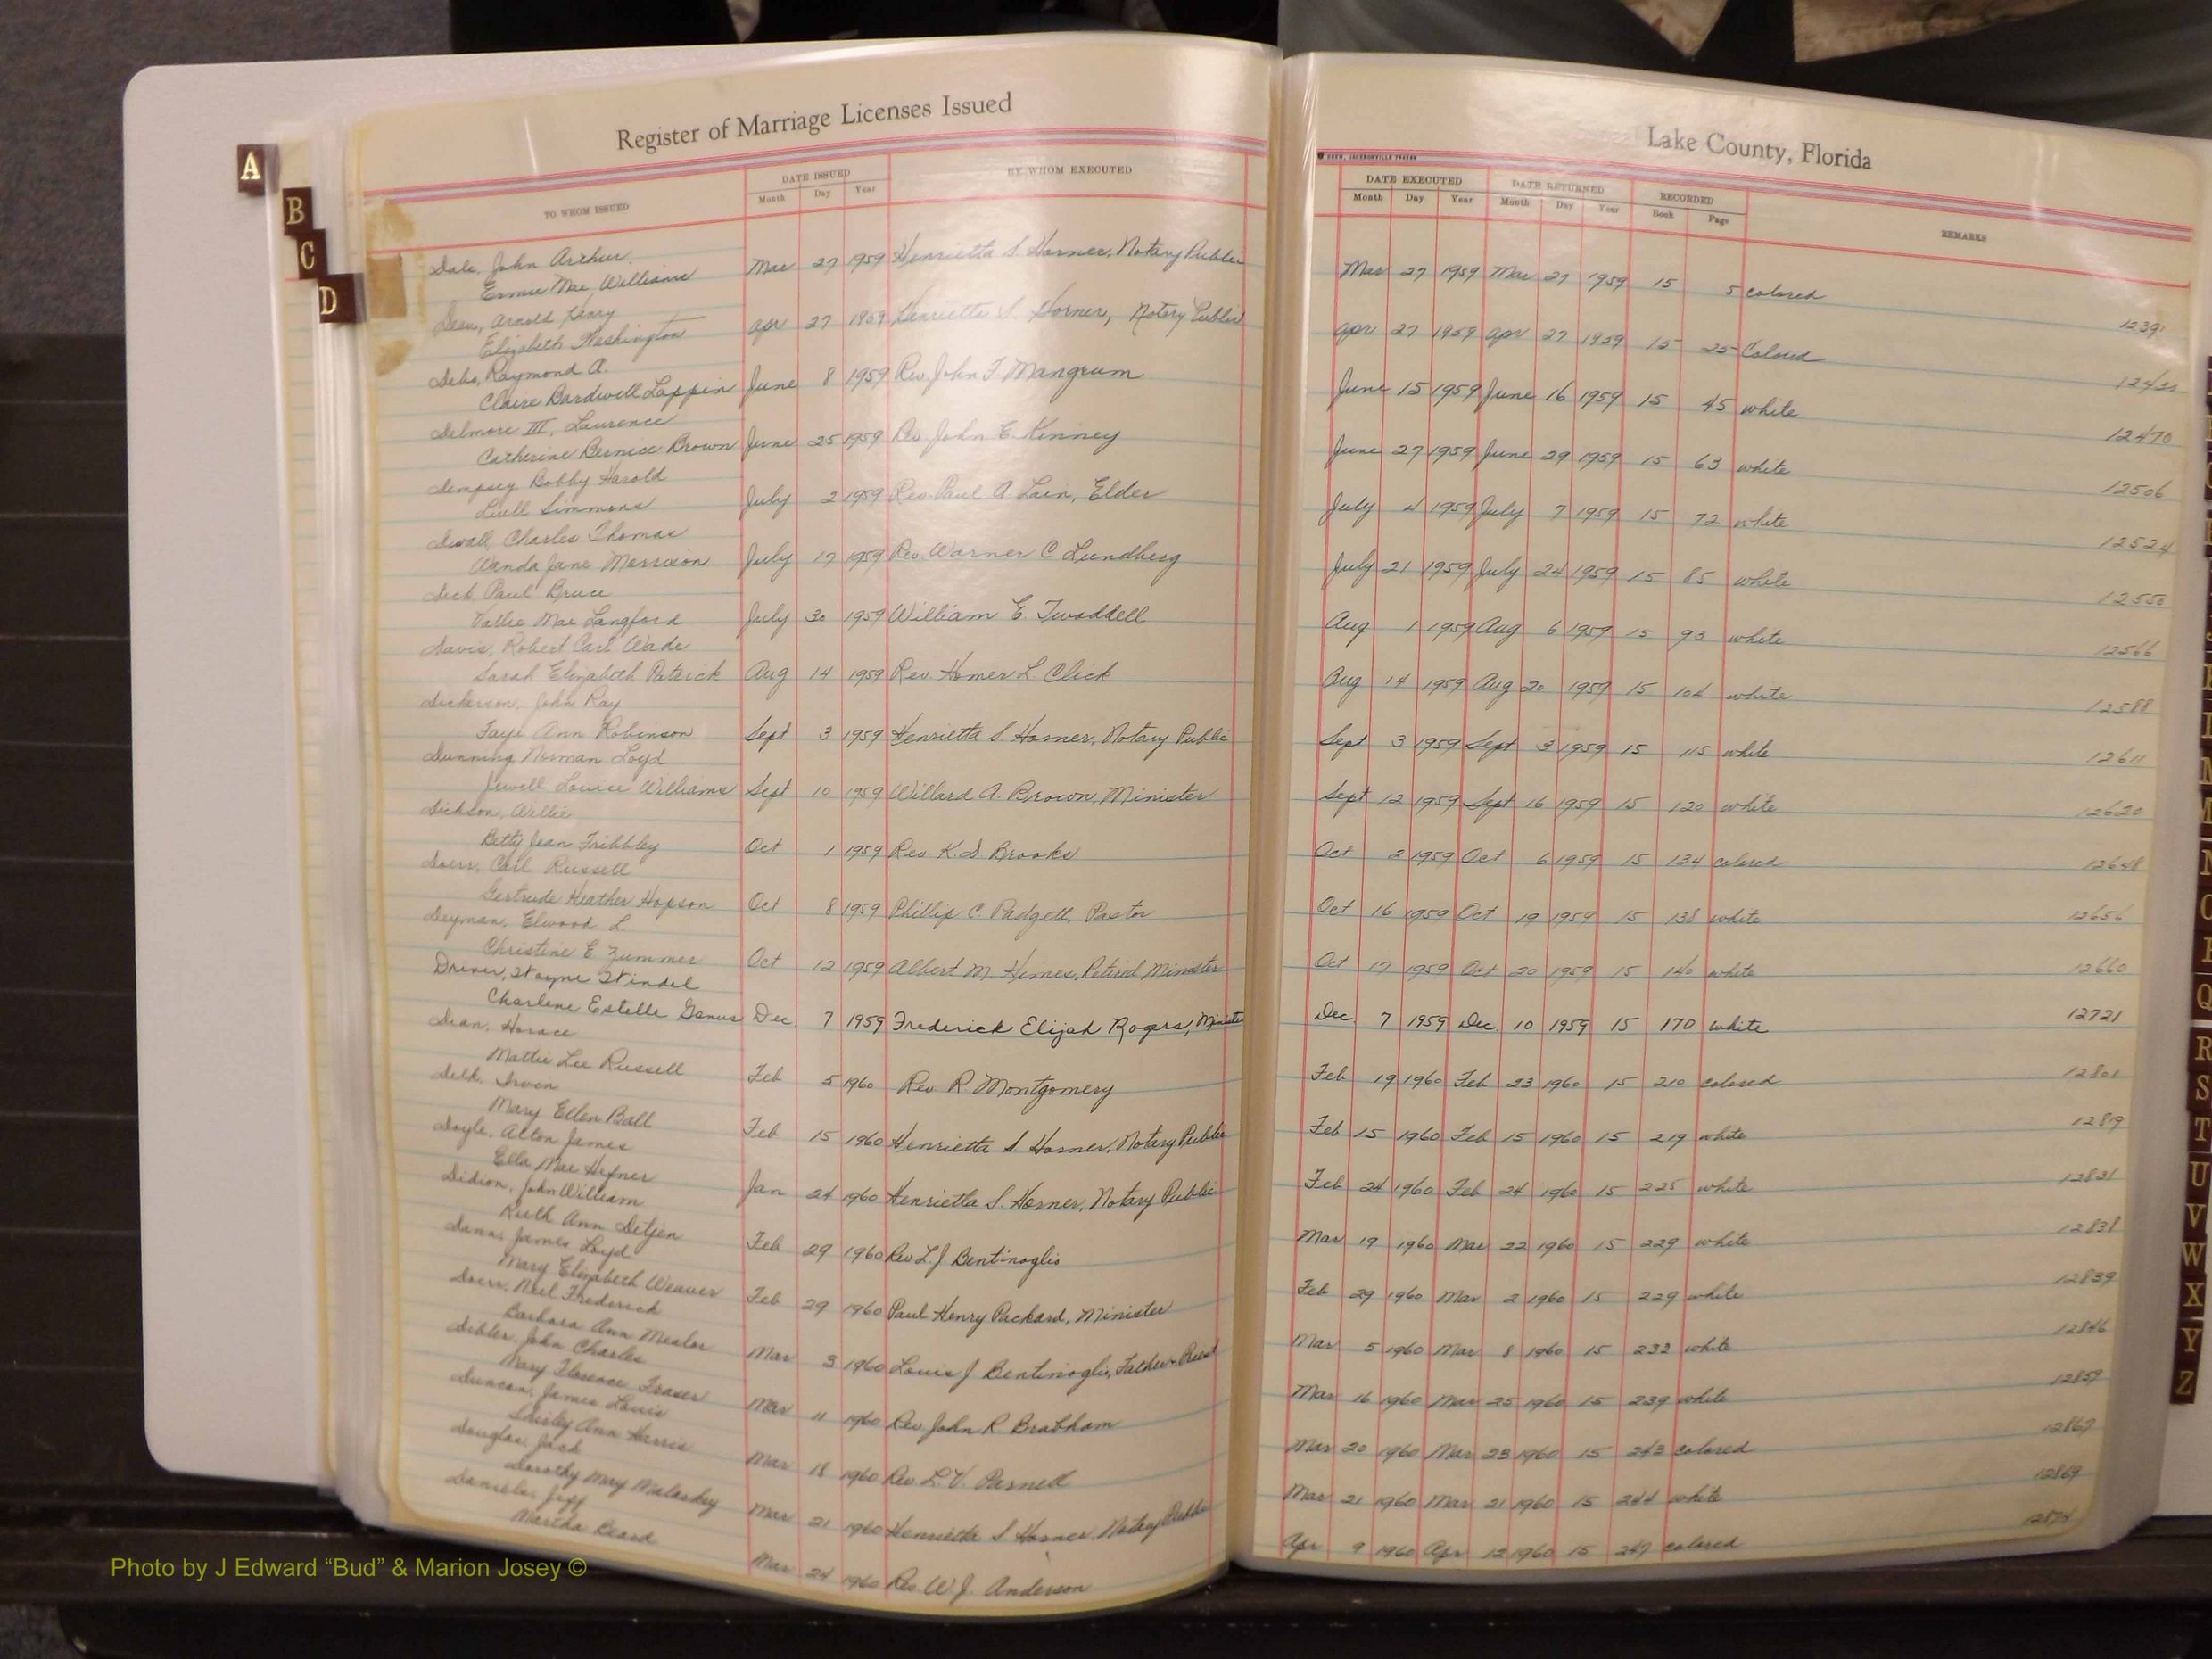 Register of Marriage Licenses Issued
Lake County, Florida
TO WHOM ISSUED
DATE ISSUED
Month Day Year
BY WHOM EXECUTED
DATE EXECUTED
Month Day Year
DATE RETURNED
Month Day Year
RECORDED
Book Page
REMARKS
A
B
C
D
Dale, John Arthur
Mae Williams Mar 27 1959 Henrietta S. Horner, Notary Public Mar 27 1959 Mar 27 1959 15 5 colored
Arnold Henry 1239
Elizabeth Washington Apr 27 1959 Henrietta S. Horner, Notary Public Apr 27 1959 Apr 27 1959 15 25 Colored
Raymond A.
Claire Bardwell Lappin June 8 1959 Rev. John F. Mangrum June 15 1959 June 16 1959 15 45 white
Delmore III, Laurence 12470
Catherine Bernice Brown June 25 1959 Rev. John E. Kinney June 27 1959 June 29 1959 15 63 white
Dempsey Bobby Harold 12506
Simmons July 2 1959 Rev. Paul A Lain, Elder July 4 1959 July 7 1959 15 72 white
Charles Thomas 12524
Wanda Jane July 17 1959 Rev. Warner C Lundberg July 21 1959 July 24 1959 15 85 white
Dick Paul Bruce 12550
Mae Langford July 30 1959 William E. Twaddell Aug 1 1959 Aug 6 1959 15 93 white
Davis, Robert Carl Wade 12566
Sarah Elizabeth Patrick Aug 14 1959 Rev. Homer L Click Aug 14 1959 Aug 20 1959 15 104 white
Dickerson, John Ray 12588
Faye Ann Robinson Sept 3 1959 Henrietta S Horner, Notary Public Sept 3 1959 Sept 3 1959 15 115 white
Dunning, Norman Loyd 12611
Jewell Louise Williams Sept 10 1959 Willard A. Brown, Minister Sept 12 1959 Sept 16 1959 15 120 white
Dickson, Willie 12620
Betty Jean Tribbley Oct 1 1959 Rev K.D Brooks Oct 2 1959 Oct 6 1959 15 134 colored
Doerr, Carl Russell 12648
Gertrude Heather Hopson Oct 8 1959 Phillip C. Padgett, Pastor Oct 16 1959 Oct 19 1959 15 138 white
Deyman, Elwood L 12656
Christine E Zummer Oct 12 1959 Albert M. Himes, Retired Minister Oct 17 1959 Oct 20 1959 15 140 white
Driver, Wayne Windel 12660
Charlene Estelle Ganus Dec. 7 1959 Frederick Elijah Rogers, Minister Dec. 7 1959 Dec. 10 1959 15 170 white
Dean, Horace 12721
Mattie Lee Russell Feb 5 1960 Rev R Montgomery Feb 19 1960 Feb 23 1960 15 210 colored
Delk, Irvin 12801
Mary Ellen Ball Feb 15 1960 Henrietta S Horner, Notary Public Feb 15 1960 Feb 15 1960 15 219 white
Doyle, Alton James 12819
Ella Mae Hefner Jan 24 1960 Henrietta S. Horner, Notary Public Feb 24 1960 Feb 24 1960 15 225 white
Didion, John William 12831
Ruth Ann Detjen Feb 29 1960 Rev L.J Bentinoglio Mar 19 1960 Mar 22 1960 15 229 white
James Loyd 12838
Mary Elizabeth Weaver Feb 29 1960 Paul Henry Packard, Minister Feb 29 1960 Mar 2 1960 15 229 white
Doerr, Neil Frederick 12839
Barbara Ann Mealor Mar 3 1960 Louis J Bentinoglio, Mar 5 1960 Mar 8 1960 15 233 white
John Charles 12846
Mary Florence Fraser Mar 11 1960 Rev John R Brabham Mar 16 1960 Mar 25 1960 15 239 white
Duncan, James Louis 12859
Shirley Ann Harris Mar 18 1960 Rev L.V. Parnell Mar 20 1960 Mar 23 1960 15 243 colored
Douglas, Jack 12867
Dorothy May Malaskey Mar 21 1960 Henrietta S Horner, Notary Public Mar 21 1960 Mar 21 1960 15 244 white
Daniels, Jeff 12869
Martha Beard Mar 24 1960 Rev. W.J. Anderson Apr 9 1960 Apr 12 1960 15 247 colored
Q
R
S
T
U
V
W
X
Y
Z
Photo by J Edward “Bud” & Marion Josey ©